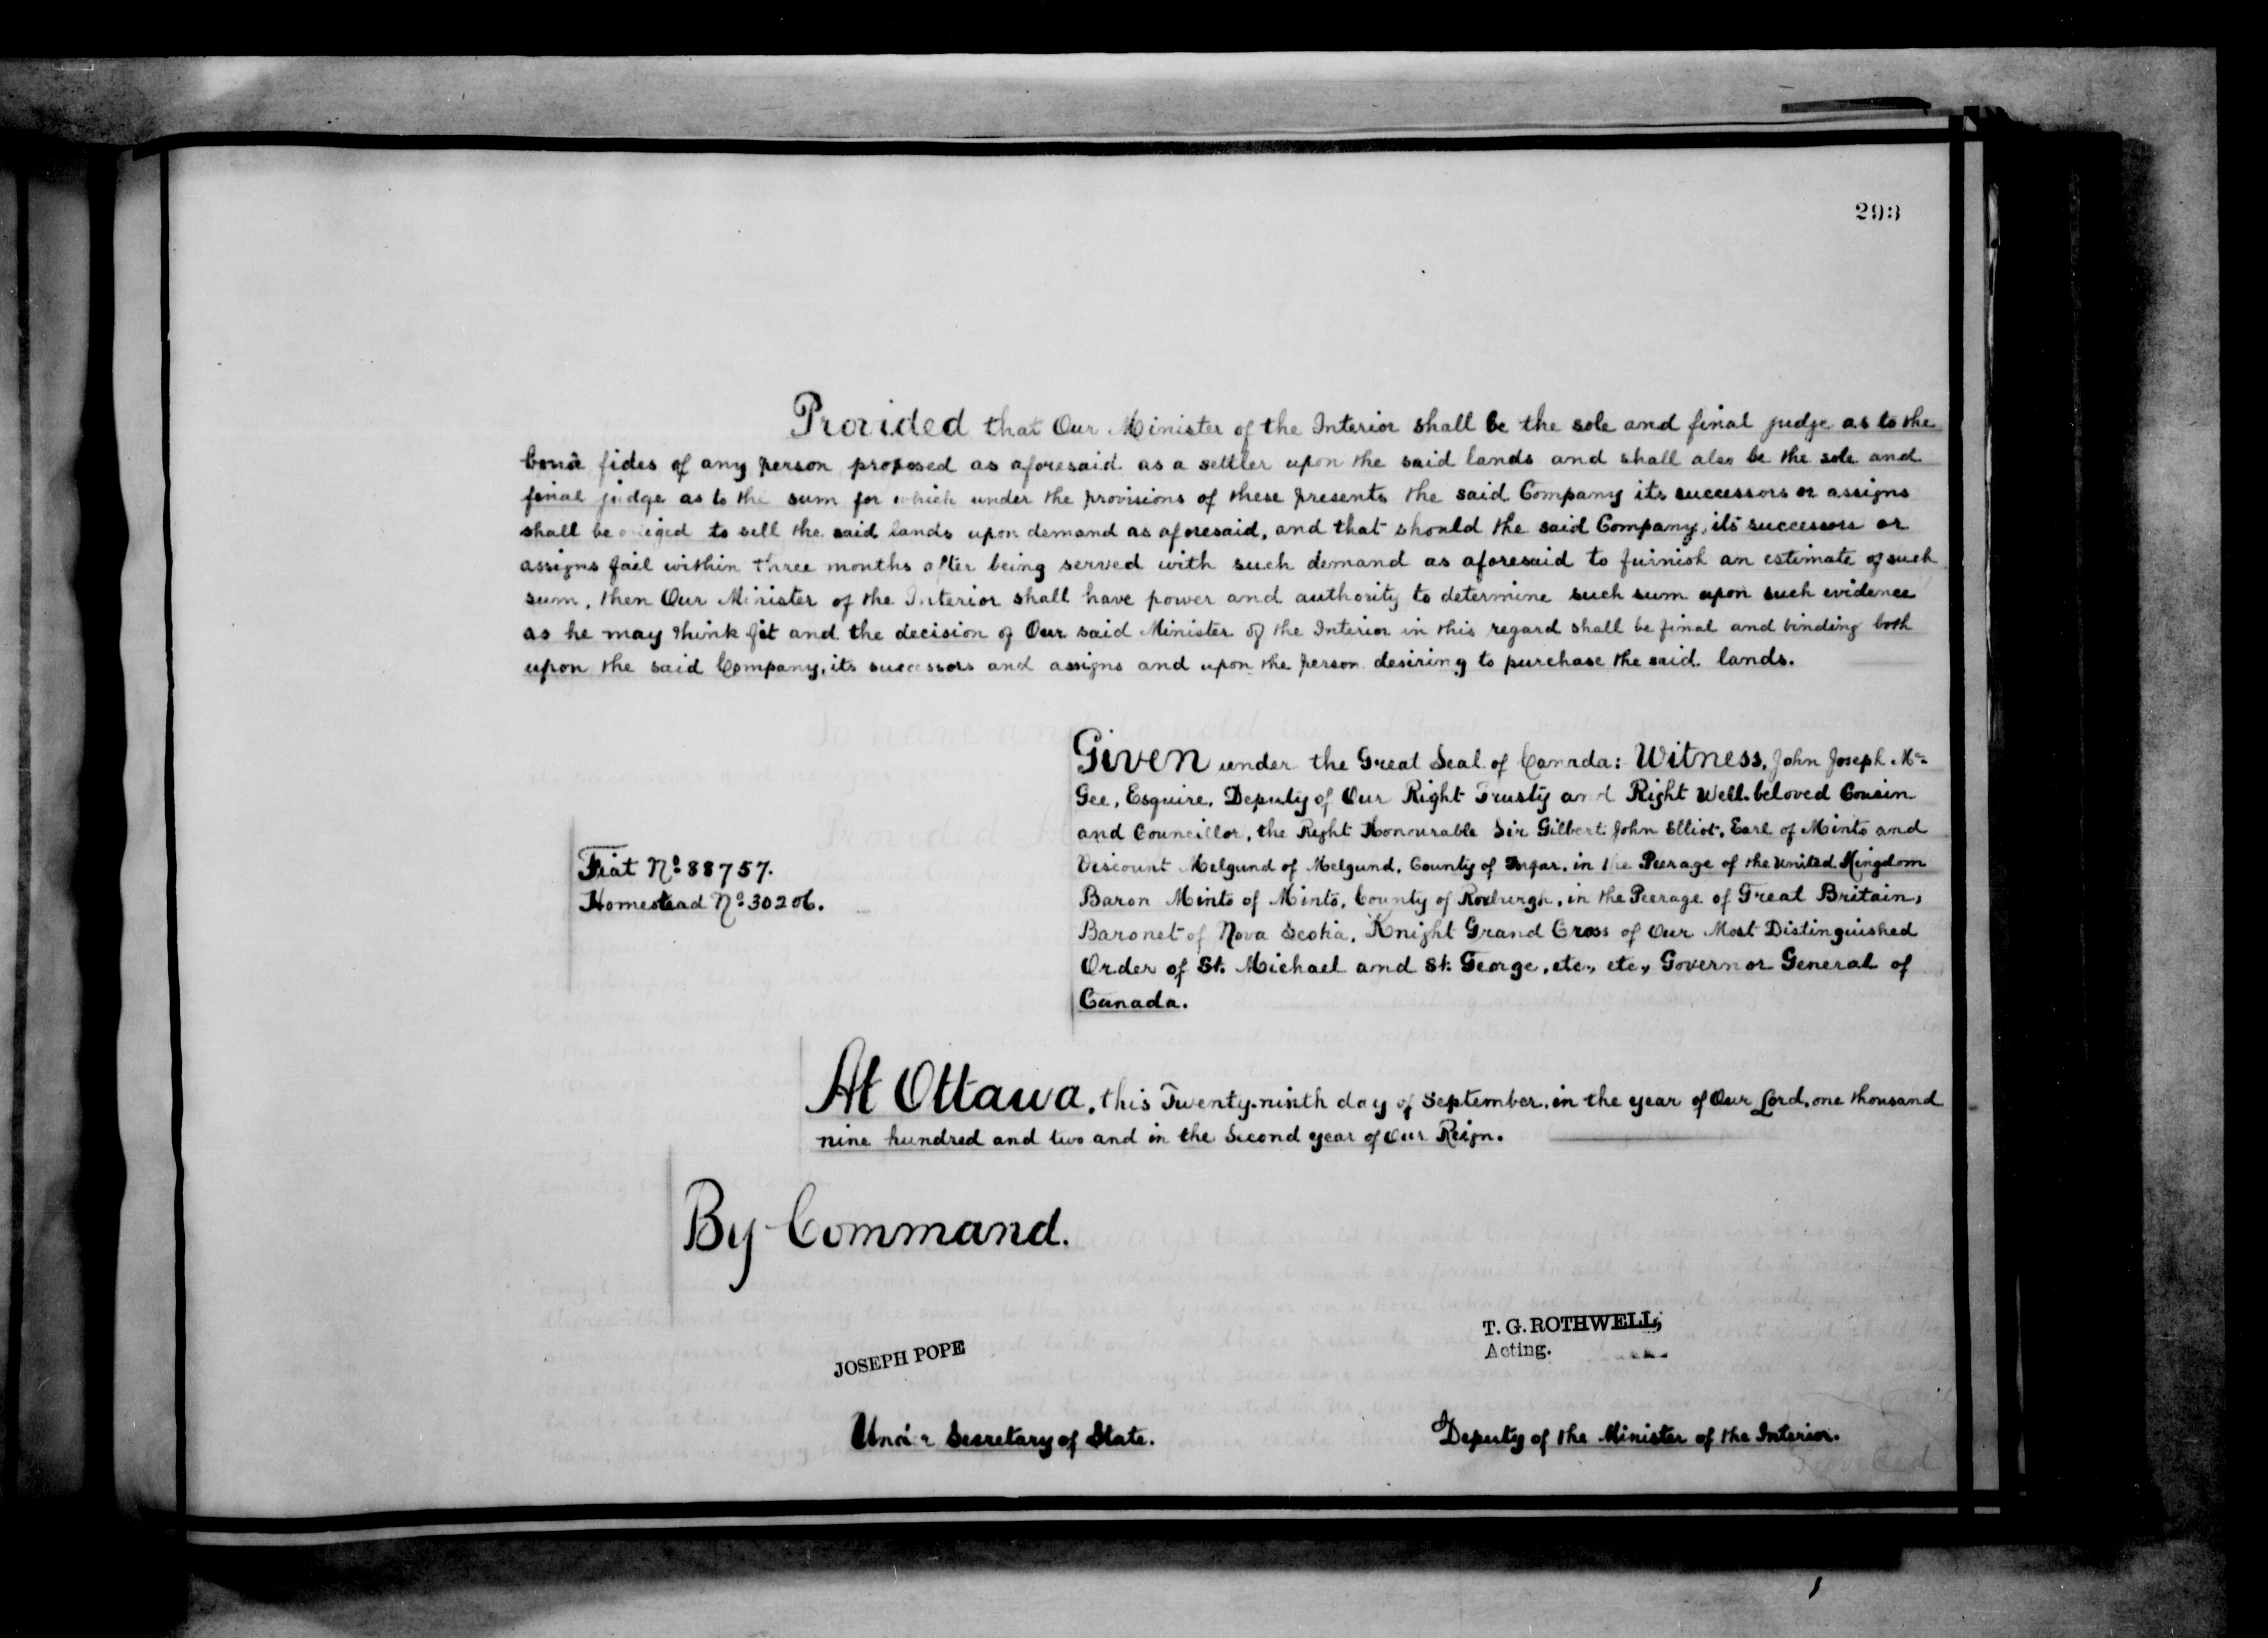 293
Provided that Our Minister of the Interior shall be the sole and final judge as to the
bonâ fides of any person proposed as aforesaid as a settler upon the said lands and shall also be the sole and
final judge as to the sum for which under the provisions of these presents the said Company its successors or assigns
shall be obliged to sell the said lands upon demand as aforesaid, and that should the said Company, its successors or
assigns fail within three months after being served with such demand as aforesaid to furnish an estimate of such
sum, then Our Minister of the Interior shall have power and authority to determine such sum upon such evidence
as he may think fit and the decision of Our said Minister of the Interior in this regard shall be final and binding both
upon the said Company, its successors and assigns and upon the person desiring to purchase the said lands.
Given under the Great Seal of Canada: Witness, John Joseph Mc=
Gee, Esquire, Deputy of Our Right Trusty and Right Well-beloved Cousin
and Councillor, the Right Honourable Sir Gilbert John Elliot, Earl of Minto and
Viscount Melgund of Melgund, County of Forfar, in the Peerage of the United Kingdom
Baron Minto of Minto, County of Roxburgh, in the Peerage of Great Britain,
Baronet of Nova Scotia, Knight Grand Cross of Our Most Distinguished
Order of St. Michael and St. George, etc., etc., Governor General of
Canada.
Fiat No. 88757.
Homestead No. 30206.
At Ottawa, this Twenty-ninth day of September, in the year of Our Lord, one thousand
nine hundred and two and in the Second year of Our Reign.
By Command.
JOSEPH POPE
Under Secretary of State.
T. G. ROTHWELL,
Acting.
Deputy of the Minister of the Interior.